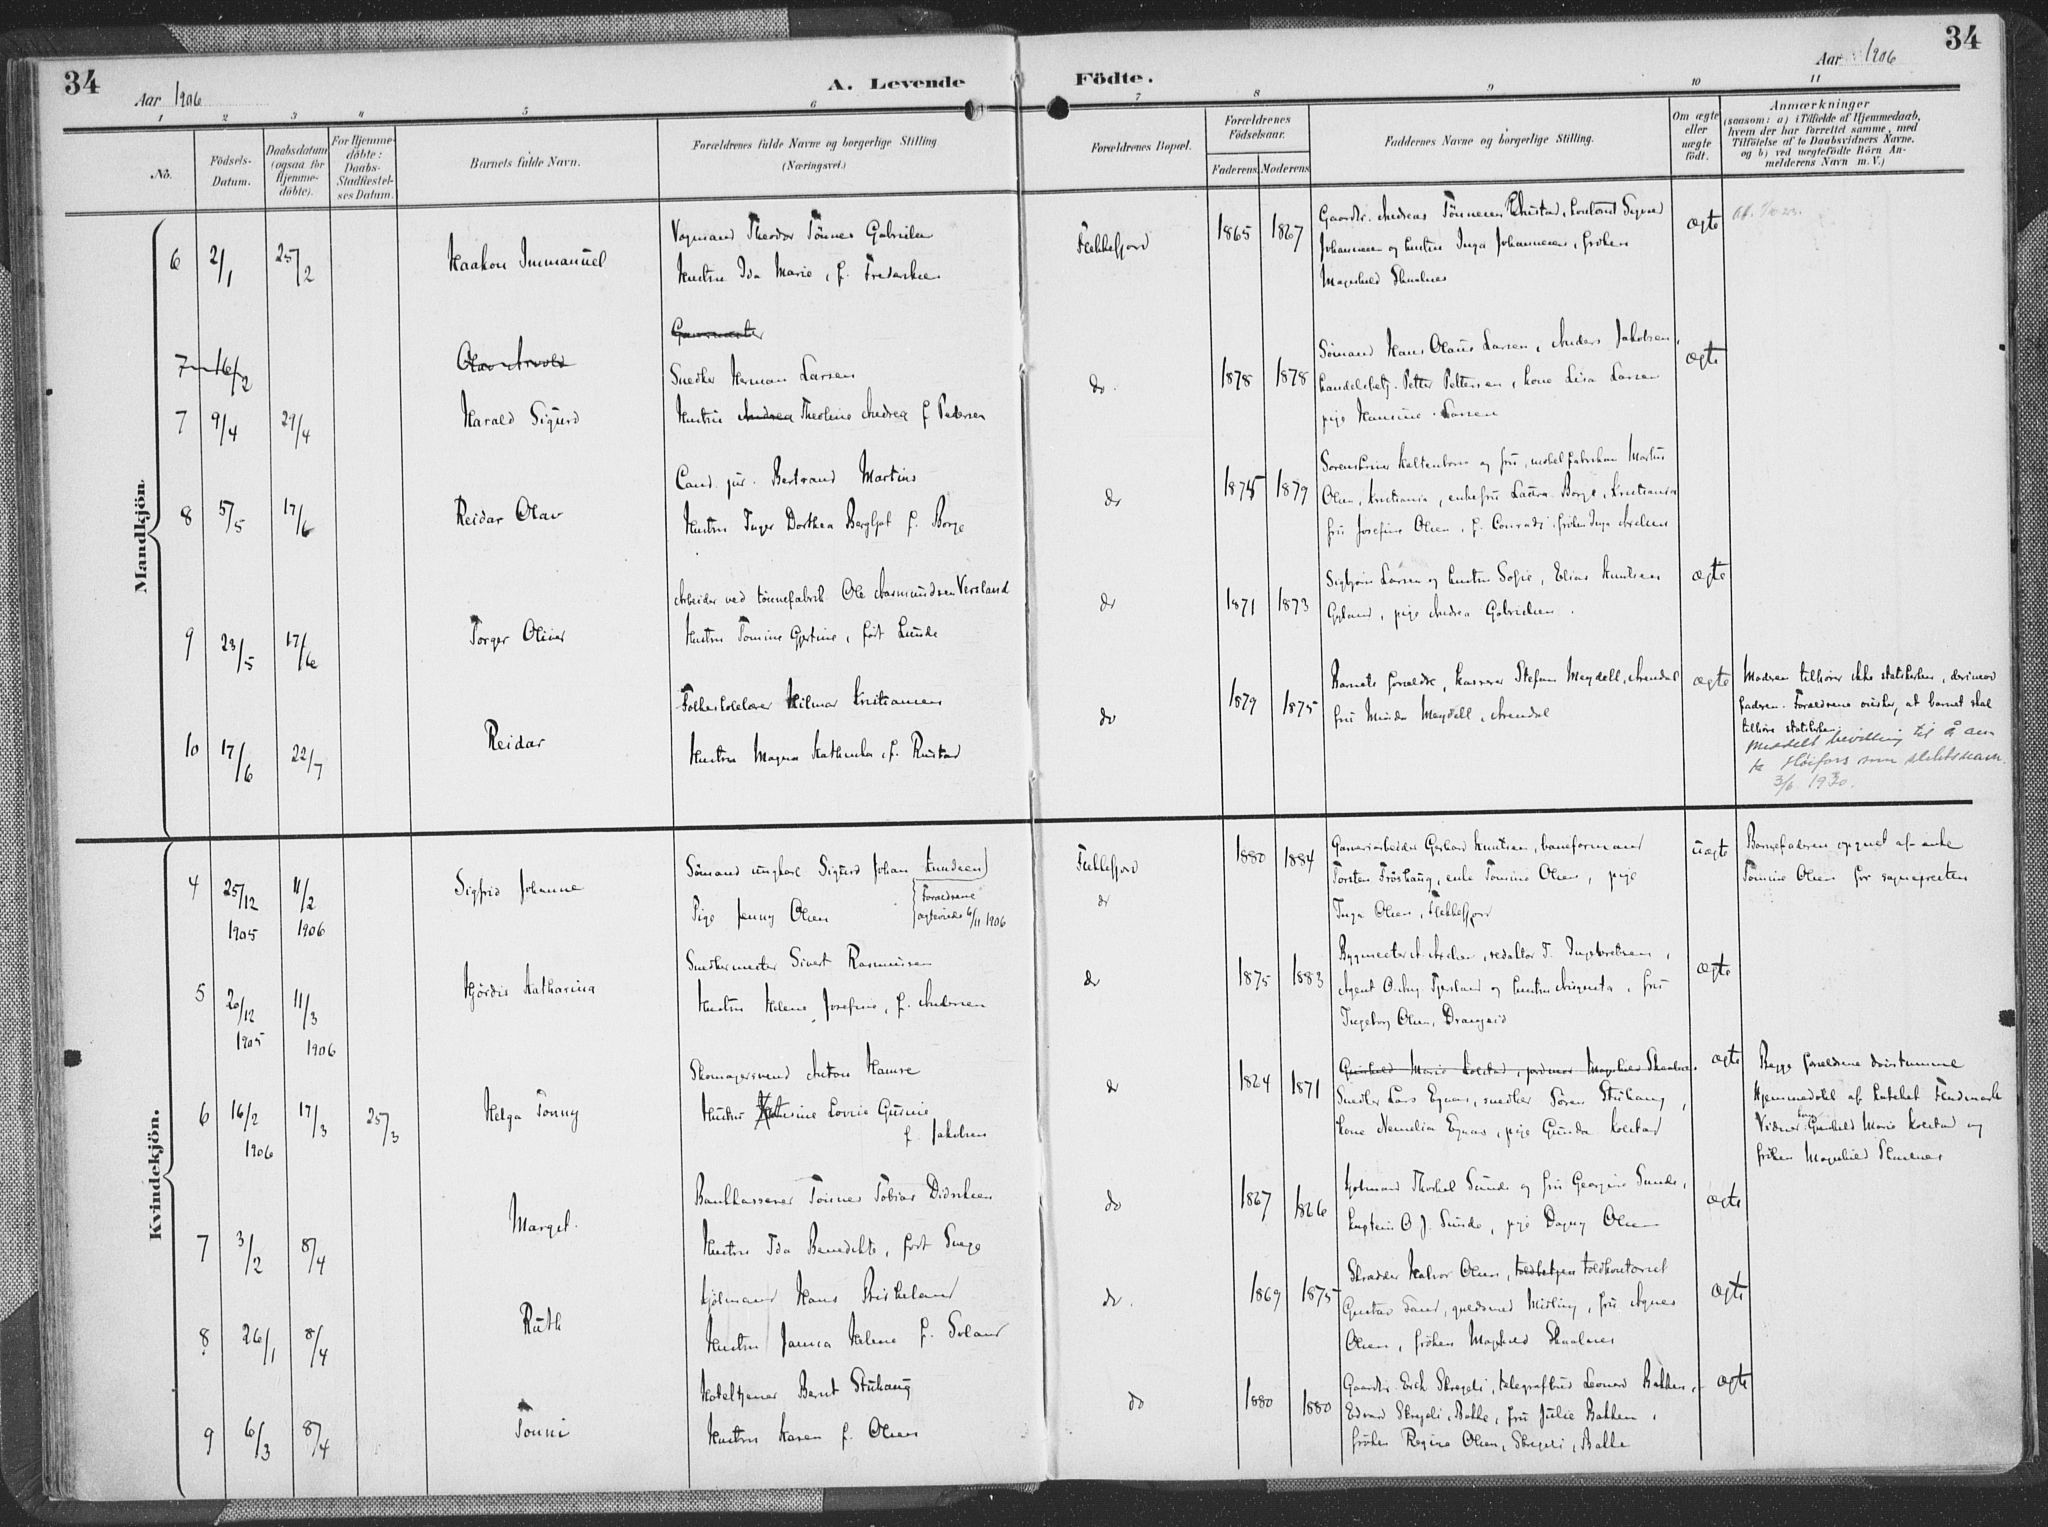 34
Aar 1906
A. Levende
Födte.
Aar 1906
34
1 2 3 4 5 6 7 8 9 10 11
No.
Födsels-
Datum.
Daabsdatum
(ogsaa for
Hjemme-
döbte).
For Hjemme-
döbte:
Daabs-
Stadfæstel-
ses Datum.
Barnets fulde Navn.
Forældrenes fulde Navne og borgerlige Stilling
(Næringsvei.)
Forældrenes Bopæl.
Forældrenes
Födselsaar.
Faderens Moderens
Faddernes Navne og borgerlige Stilling.
Om ægte
eller
uægte
födt.
Anmærkninger
(saasom: a) i Tilfælde af Hjemmedaab,
hvem der har forrettet samme, med
Tilföielse af to Daabsvidners Navne,
og b) ved uægtefödte Börn An-
melderens Navn m. V.)
Mandkjön.
6 2/1 25/2
Haakon Immanuel
Vognmand Theodor Tönnes Gabrielsen
Hustru Ida Marie, f. Frederiksen
Flekkefjord
1865 1867
Gaardbr. Andreas Tönnesen
Johannesen og hustru Inga Johannesen, fröken
Magnhild Skaalnes
ægte
7 16/2
Olav Arvold
7 9/4 29/4
Harald Sigurd
Snedker Herman Larsen
Hustru Andrea Theoline Andrea f. Pedersen
do.
1878 1878
Sömand Hans Olaus Larsen, Anders Jakobsen,
handelsbetj. Petter Pettersen, kone Lisa Larsen
pige Hansine Larsen
ægte
8 5/5 17/6
Reidar Olav
Cand. jur. Bertrand Martins
Hustru Inger Dorthea Bergljot f. Borge
do
1875 1879
Sorenskriver Kaltenborn og fru, möbelfabrikan Martin
Olsen, Kristiania, enkefru Laura Borge, Kristiania
fru Josefine Olsen, f. Conradi, fröken Inga
9 23/5 17/6
Torger Oliver
Arbeider ved tönnefabrik Ole Aasmundsen Versland
Hustru Tomine Gjertine, födt Lunde
do
1871 1873
Sigbjörn Larsen og hustru Sofie, Elias Knutsen
Gyland, pige Andrea Gabrielsen.
ægte
10 17/6 22/7
Reidar
Folkeskolelærer Hilmar Kristiansen
Hustru Magna Kathinka, f. Rustad
do
1879 1875
Barnets forældre, kasserer Stefan Meydell, Arendal
fru Minda Meydell, Arendal
ægte
Modren tilhörer ikke statskirken, derimod
fadren. Forældrene önsker, at barnet skal
tilhöre statskirken.
Meddelt bevilling til å an
ta Höifors som slektsnavn.
3/6 1930.
Kvindekjön.
4 25/12 1905 11/2 1906
Sigfrid Johanne
Sömand ungkarl Sigurd Johan Knudsen
Pige Jenny Olsen
Forældrene
ægteviede 6/11 1906
Flekkefjord
do
1880 1884
Garveriarbeider Gerhard Knutsen, baneformand
Torsten Fröshaug, enke Tomine Olsen, pige
Inga Olsen, Flekkefjord
uægte
Barnefadren opgivet af enke
Tomine Olsen for sognepresten
5 20/12 1905 11/3 1906
Hjördis Katharina
Snedkermester Sivert Rasmussen
Hustru Helene Josefine, f. Andersen
do
1875 1883
Bygmester A. Archer, redaktör T. Ingebretsen,
Agent O. Aug. Tjersland og hustru Augusta, fru
Ingeborg Olsen, Drangeid
ægte
6 16/2 1906 17/3 25/3
Helga Tonny
Skomagersvend Anton Hamre
Hustru Lovise Gurine
f. Jakobsen
do
1824 1871
Gunhild Marie Kolstad, jordmor Magnhild Skaalnes
Snedker Lars Egnas, snedker Sören Stuhaug,
kone Nemelia Egnas, pige Gunda Kolstad
ægte
Begge forældrene dövstumme
Hjemmedöbt af kateket Fendmark
Vidner: Gunhild Marie Kolstad og
fröken Magnhild Skaalnes
7 3/2 8/4
Margit.
Bankkasserer Tönnes Tobias Didriksen
Hustru Ida Benedikte, födt Svege
do
1867 1866
Kjöbmand Thorkel Sunde og fru Georgine Sunde,
kaptein O. J. Sunde, pige Dagny Olsen
ægte
8 26/1 8/4
Ruth
Kjöbmand Hans Briskeland
Hustru Janna Helene f. Soland
do.
1869 1875
Skrædder Halvor Olsen, toldbetjen toldkontorist
Gustav Sand, guldsmed Midling, fru Agnes
Olsen, fröken Magnhild Skaalnes
ægte
9 6/3 8/4
Tonni
Hoteltjener Bernt Stuhaug
Hustru Karen f. Olsen
do
1880 1880
Gaardbr. Erik Skregeli, telegrafbud Leonard Bakken,
Edvard Skregeli, Bakke, fru Julie Bakken,
fröken Regine Olsen, Skregeli, Bakke
ægte